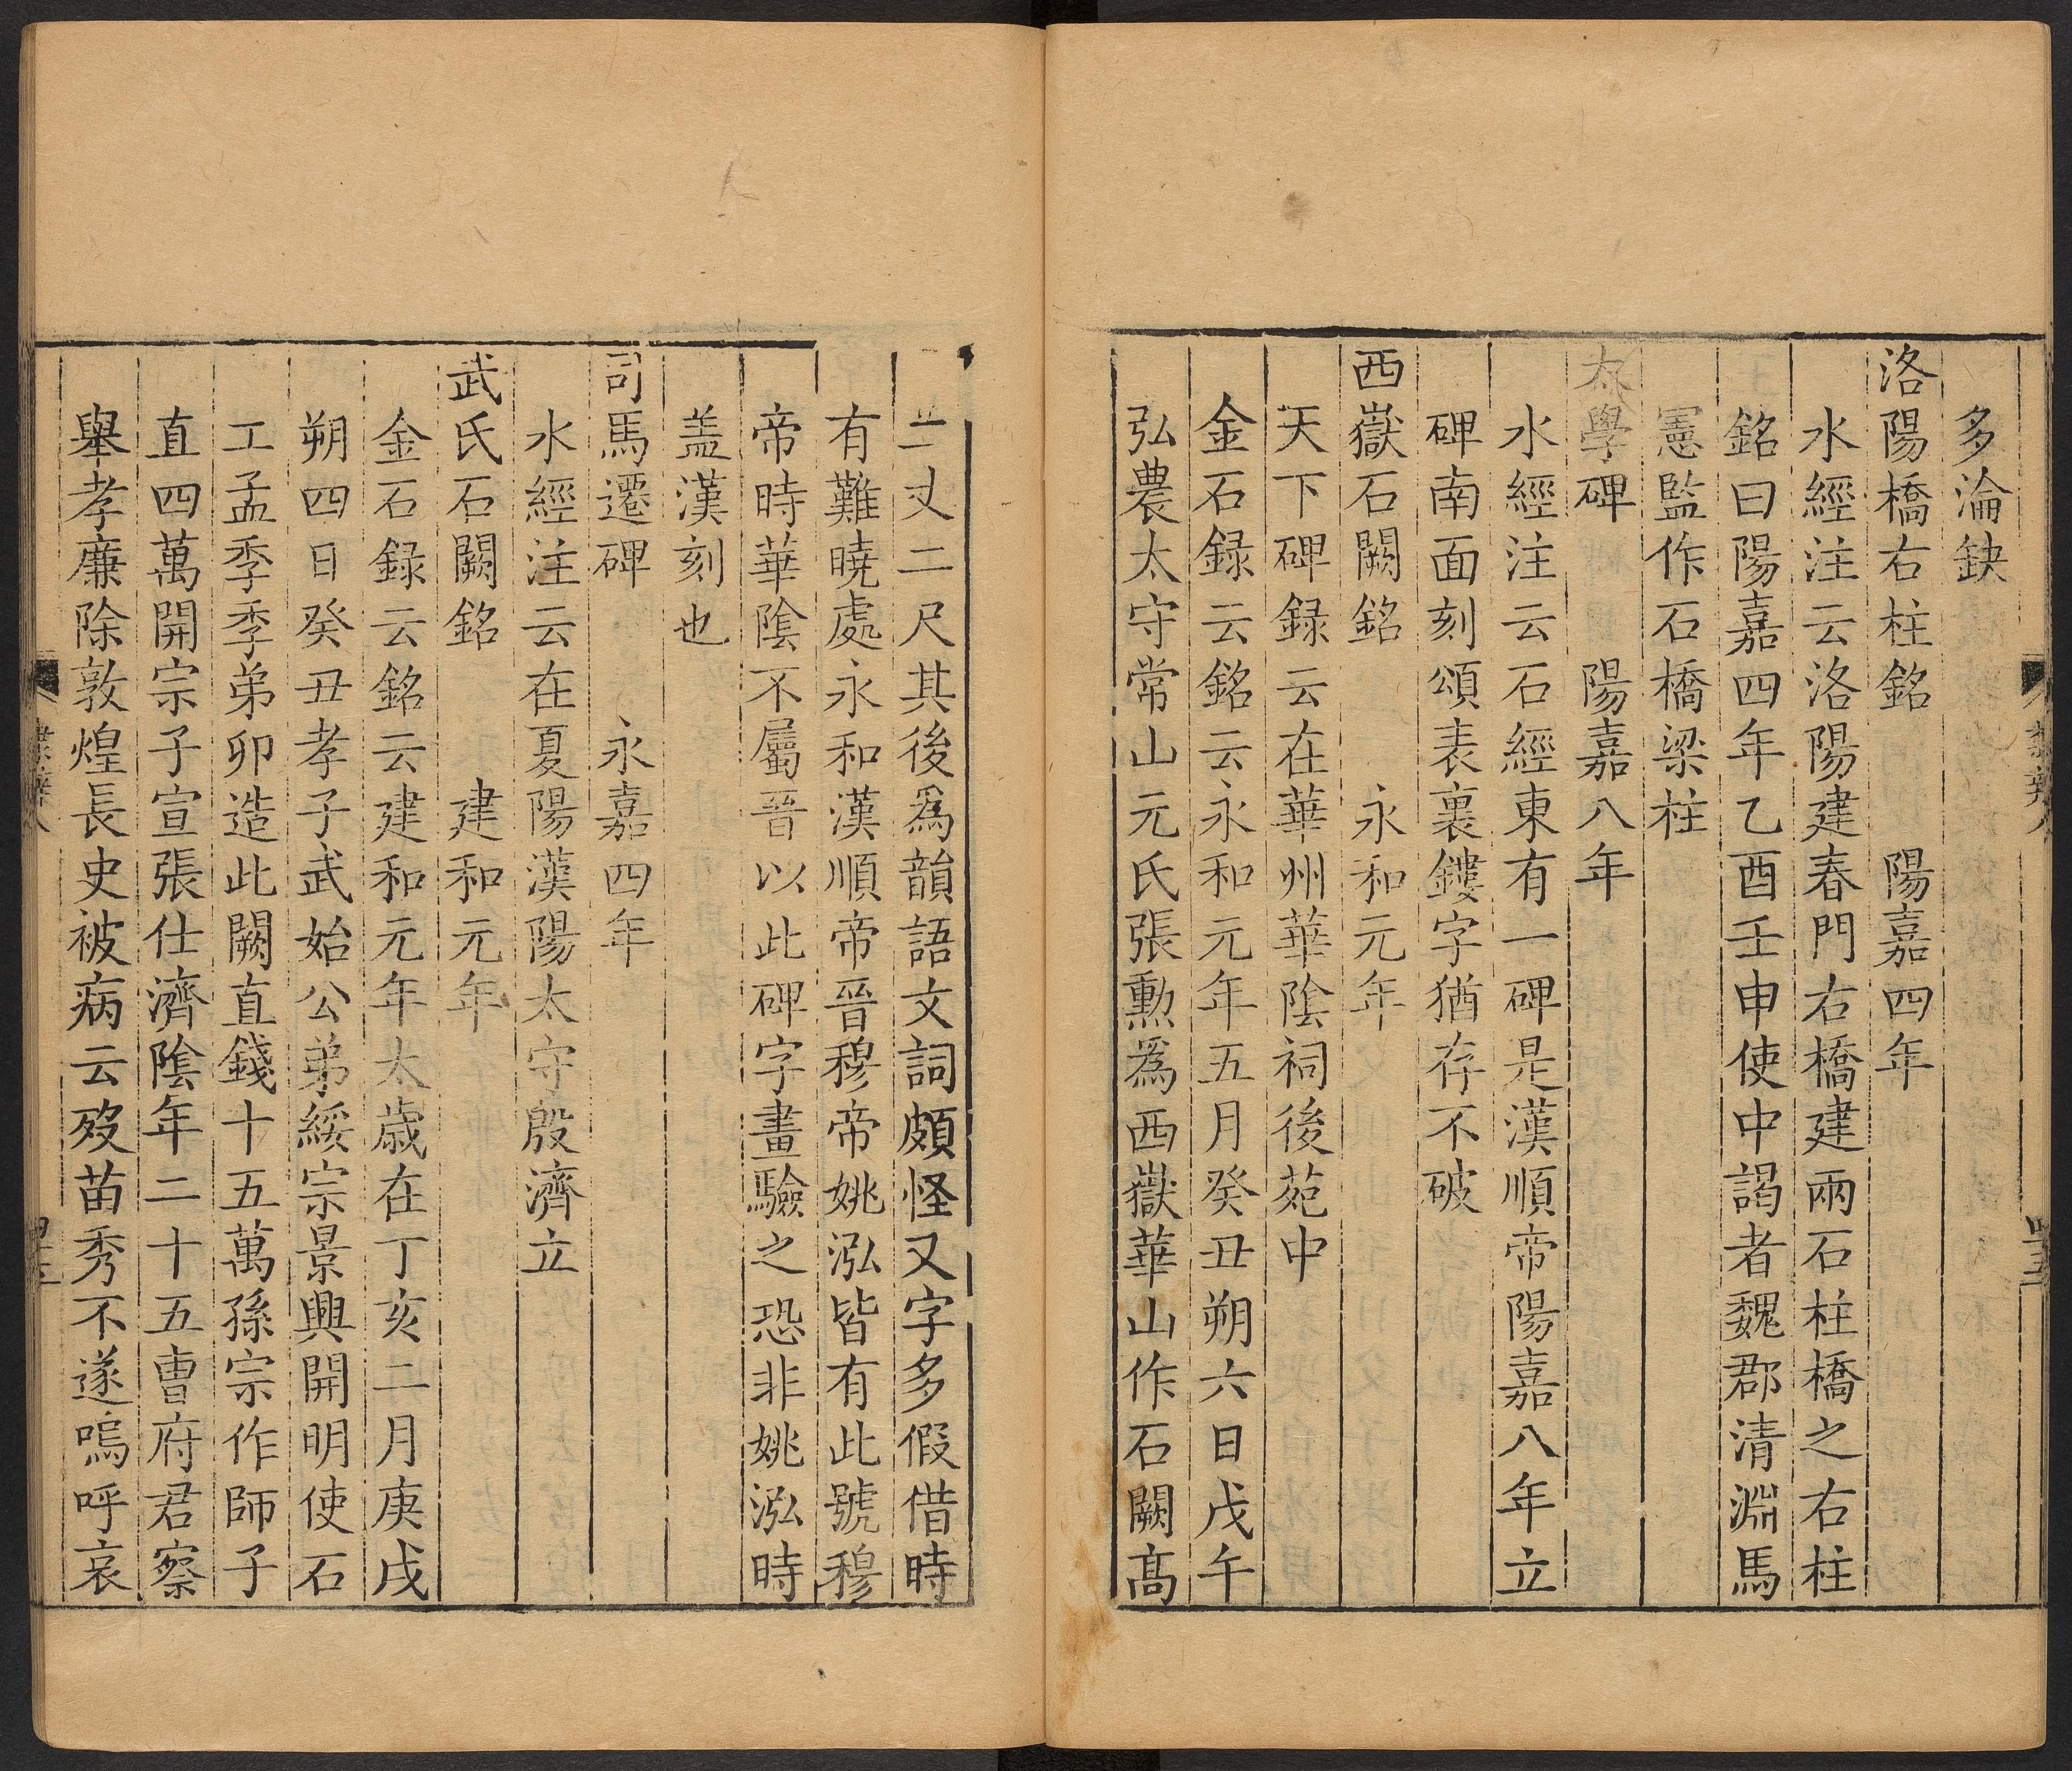 多淪缺
洛陽橋右柱銘　陽嘉四年
水經注云洛陽建春門右橋建兩石柱橋之右柱
銘曰陽嘉四年乙酉壬申使中謁者魏郡清淵馬
憲監作石橋梁柱
太學碑　陽嘉八年
水經注云石經東有一碑是漢順帝陽嘉八年立
碑南面刻頌表裏鏤字猶存不破
西嶽石闕銘　永和元年
天下碑録云在華州華陰祠後苑中
金石録云銘云永和元年五月癸丑朔六日戊午
弘農太守常山元氏張勲爲西嶽華山作石闕髙
二丈二尺其後爲韻語文詞頗怪又字多假借時
有難曉處永和漢順帝晉穆帝姚泓皆有此號穆
帝時華陰不屬晉以此碑字畫驗之恐非姚泓時
盖漢刻也
司馬遷碑　永嘉四年
水經注云在夏陽漢陽太守殷濟立
武氏石闕銘　建和元年
金石録云銘云建和元年太歲在丁亥二月庚戌
朔四日癸丑孝子武始公弟綏宗景興開明使石
工孟季季弟卯造此闕直錢十五萬孫宗作師子
直四萬開宗子宣張仕濟陰年二十五曺府君察
舉孝廉除敦煌長史被病云歿苗秀不遂嗚呼哀